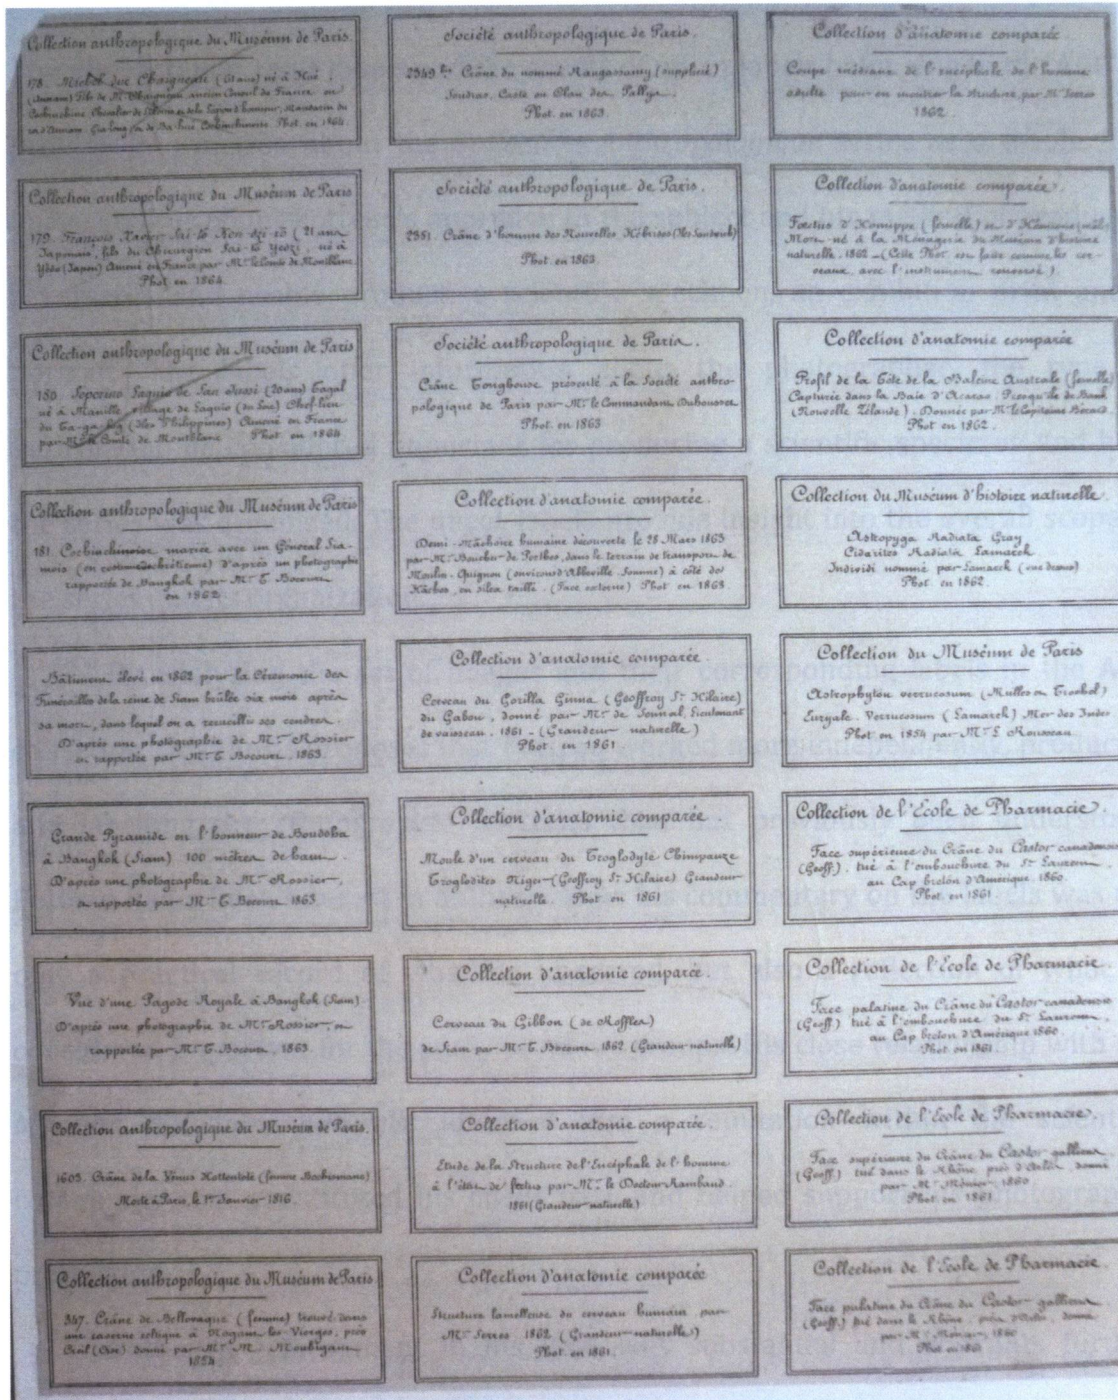 Collection anthropologique du Muséum de Paris.
178. Michel duc Chaigneau (61 ans) né à Hué.
(Annam) fils de Mr. Chaigneau ancien Consul de France en
Cochinchine Chevalier de la Légion d'honneur, Mandarin du
roi d'Annam Gia-long Phot. en 1864.
Collection anthropologique du Muséum de Paris
179. François Xavier Saï-tô Ken (21 ans
Japonais, fils du Chirurgien Saï-tô né à
Yédo (Japon) Amené en France par Mr. le Comte de Montblanc
Phot. en 1864.
Collection anthropologique du Muséum de Paris
180 Saquie de San José (20 ans) Tagal
né à Manille, village de Saquie (du Sud) Chef-lieu
du Ta-ga-log (Iles Philippines) Amené en France
par Mr. le Comte de Montblanc Phot en 1864
Collection anthropologique du Muséum de Paris
181. Cochinchinoise mariée avec un Général Sia-
mois (en costume chrétienne) d'après un photographie
rapportée de Bangkok par Mr. T. Bocourt
en 1862.
Bâtiment élevé en 1862 pour la Cérémonie des
Funérailles de la reine de Siam brûlée six mois après
sa mort, dans lequel on a recueilli ses cendres.
D'après une photographie de Mr. Rossier
et rapportée par Mr. T. Bocourt, 1863.
Grande Pyramide en l'honneur de Bouddha
à Bangkok (Siam) 100 mètres de haut.
D'après une photographie de Mr. Rossier,
et rapportée par Mr. T. Bocourt, 1863.
Vue d'une Pagode Royale à Bangkok (Siam)
D'après une photographie de Mr. Rossier, et
rapportée par Mr. T. Bocourt, 1863.
Collection anthropologique du Muséum de Paris.
1603. Crâne de la Vénus Hottentote (femme Boschismane)
Morte à Paris, le 1er Janvier 1816.
Collection anthropologique du Muséum de Paris
347. Crâne de Bellovaque (femme) trouvé dans
une caverne celtique à Nogent les Vierges, près
Creil (Oise) donné par Mr. M. Houbigant
1854.
Société anthropologique de Paris.
2349 bis Crâne du nommé Rangassamy (supplicié)
Soudras, Caste ou Clan des Pallys.
Phot. en 1863.
Société anthropologique de Paris.
2351. Crâne d'homme des Nouvelles Hébrides (Iles Sandwich)
Phot. en 1863.
Société anthropologique de Paris.
Crâne Tongbouse présenté à la Société anthro-
pologique de Paris par Mr. le Commandant Duhousset
Phot. en 1863
Collection d'anatomie comparée.
Demi-Mâchoire humaine découverte le 28 Mars 1863
par Mr. Boucher de Perthes, dans le terrain de transport de
Moulin-Quignon (environs d'Abbeville Somme) à côté des
Hâches, en silex taillé. (Face externe) Phot en 1863.
Collection d'anatomie comparée.
Cerveau du Gorilla Ginna (Geoffroy St. Hilaire)
du Gabon, donné par Mr. de Lieutenant
de vaisseau. 1861 - (Grandeur naturelle)
Phot. en 1861.
Collection d'anatomie comparée.
Moule d'un cerveau du Troglodyte Chimpanze
Troglodites Niger (Geoffroy St. Hilaire) Grandeur
naturelle. Phot. en 1861
Collection d'anatomie comparée.
Cerveau du Gibbon (de Raffles)
de Siam par Mr. T. Bocourt, 1862. (Grandeur naturelle)
Collection d'anatomie comparée.
Etude de la Structure de l'Encéphale de l'homme
à l'état de fœtus par Mr. le Docteur Rambaud.
1861 (Grandeur naturelle)
Collection d'anatomie comparée
Structure lamelleuse du cerveau humain par
Mr. Serres 1862 (Grandeur naturelle)
Phot. en 1861.
Collection d'anatomie comparée.
Coupe médiane de l'encéphale de l'homme
adulte pour en montrer la structure, par Mr. Serres
1862.
Collection d'anatomie comparée.
Fœtus d'Hemippe (femelle) et d'Hémione (mâle)
Mort-né à la Ménagerie du Muséum d'histoire
naturelle, 1862 - (Cette Phot. est faite comme les cer-
veaux, avec l'instrument renversé).
Collection d'anatomie comparée
Profil de la Tête de la Baleine Australe (femelle)
Capturée dans la Baie d'Acaroa. Presqu'île de Bank
(Nouvelle Zélande). Donnée par Mr. le Capitaine Bérard
Phot. en 1862.
Collection du Muséum d'histoire naturelle.
Astropyga Radiata Gray
Cidarites Radiata Lamarck
Individi nommé par Lamarck (vue dessus)
Phot. en 1862.
Collection du Muséum de Paris
Astrophyton verrucosum (Mulles et Troshel)
Euryale. Verrucosum (Lamarck) Mer des Indes
Phot en 1854 par Mr. L. Rousseau.
Collection de l'Ecole de Pharmacie.
Face supérieure du Crâne du Castor canadensis
(Geoff.) tué à l'embouchure du St. Laurent
au Cap breton d'Amérique 1860.
Phot. en 1861
Collection de l'Ecole de Pharmacie.
Face palatine du Crâne du Castor canadensis
(Geoff) tué à l'embouchure du St. Laurent,
au Cap breton d'Amérique 1860.
Phot en 1861
Collection de l'Ecole de Pharmacie.
Face supérieure du Crâne du Castor galliens
(Geoff.) tué dans le Rhône près d'Arles, donné
par Mr. 1860
Phot en 1861
Collection de l'Ecole de Pharmacie.
Face palatine du Crâne du Castor galliens
(Geoff) tué dans le Rhône, près d'Arles, donné
par Mr. 1860
Phot en 1861